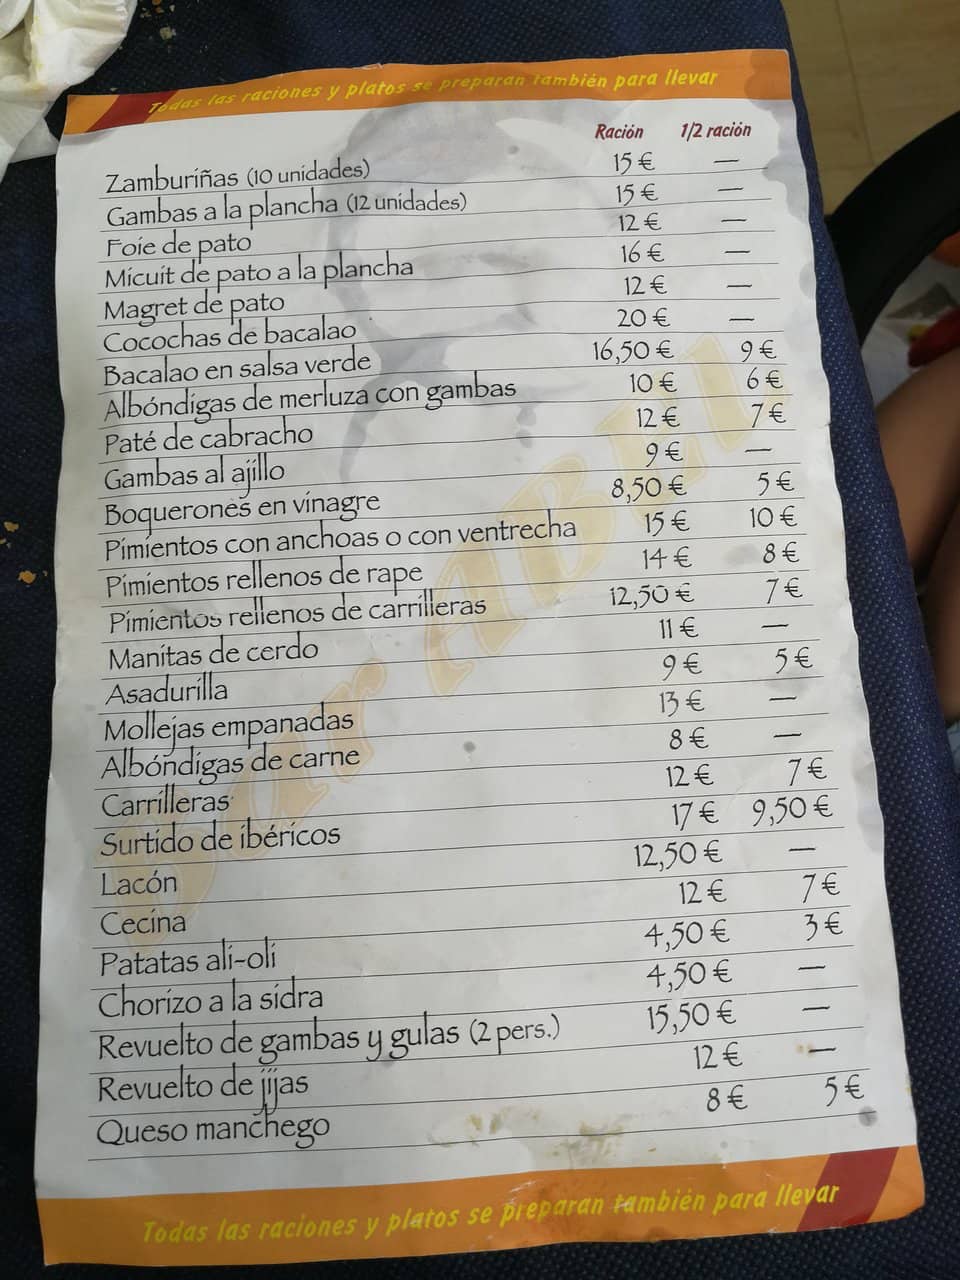 Todas las raciones y platos se preparan también para llevar
Ración 1/2 ración
Zamburiñas (10 unidades) 15 € —
Gambas a la plancha (12 unidades) 15 € —
Foie de pato 12 € —
Micuit de pato a la plancha 16 € —
Magret de pato 12 € —
Cocochas de bacalao 20 € —
Bacalao en salsa verde 16,50 € 9 €
Albóndigas de merluza con gambas 10 € 6 €
Paté de cabracho 12 € 7 €
Gambas al ajillo 9 € —
Boquerones en vinagre 8,50 € 5 €
Pimientos con anchoas o con ventrecha 15 € 10 €
Pimientos rellenos de rape 14 € 8 €
Pimientos rellenos de carrilleras 12,50 € 7 €
Manitas de cerdo 11 € —
Asadurilla 9 € 5 €
Mollejas empanadas 13 € —
Albóndigas de carne 8 € —
Carrilleras 12 € 7 €
Surtido de ibéricos 17 € 9,50 €
Lacón 12,50 € —
Cecina 12 € 7 €
Patatas ali-oli 4,50 € 3 €
Chorizo a la sidra 4,50 € —
Revuelto de gambas y gulas (2 pers.) 15,50 € —
Revuelto de jijas 12 € —
Queso manchego 8 € 5 €
Bar ABEL
Todas las raciones y platos se preparan también para llevar